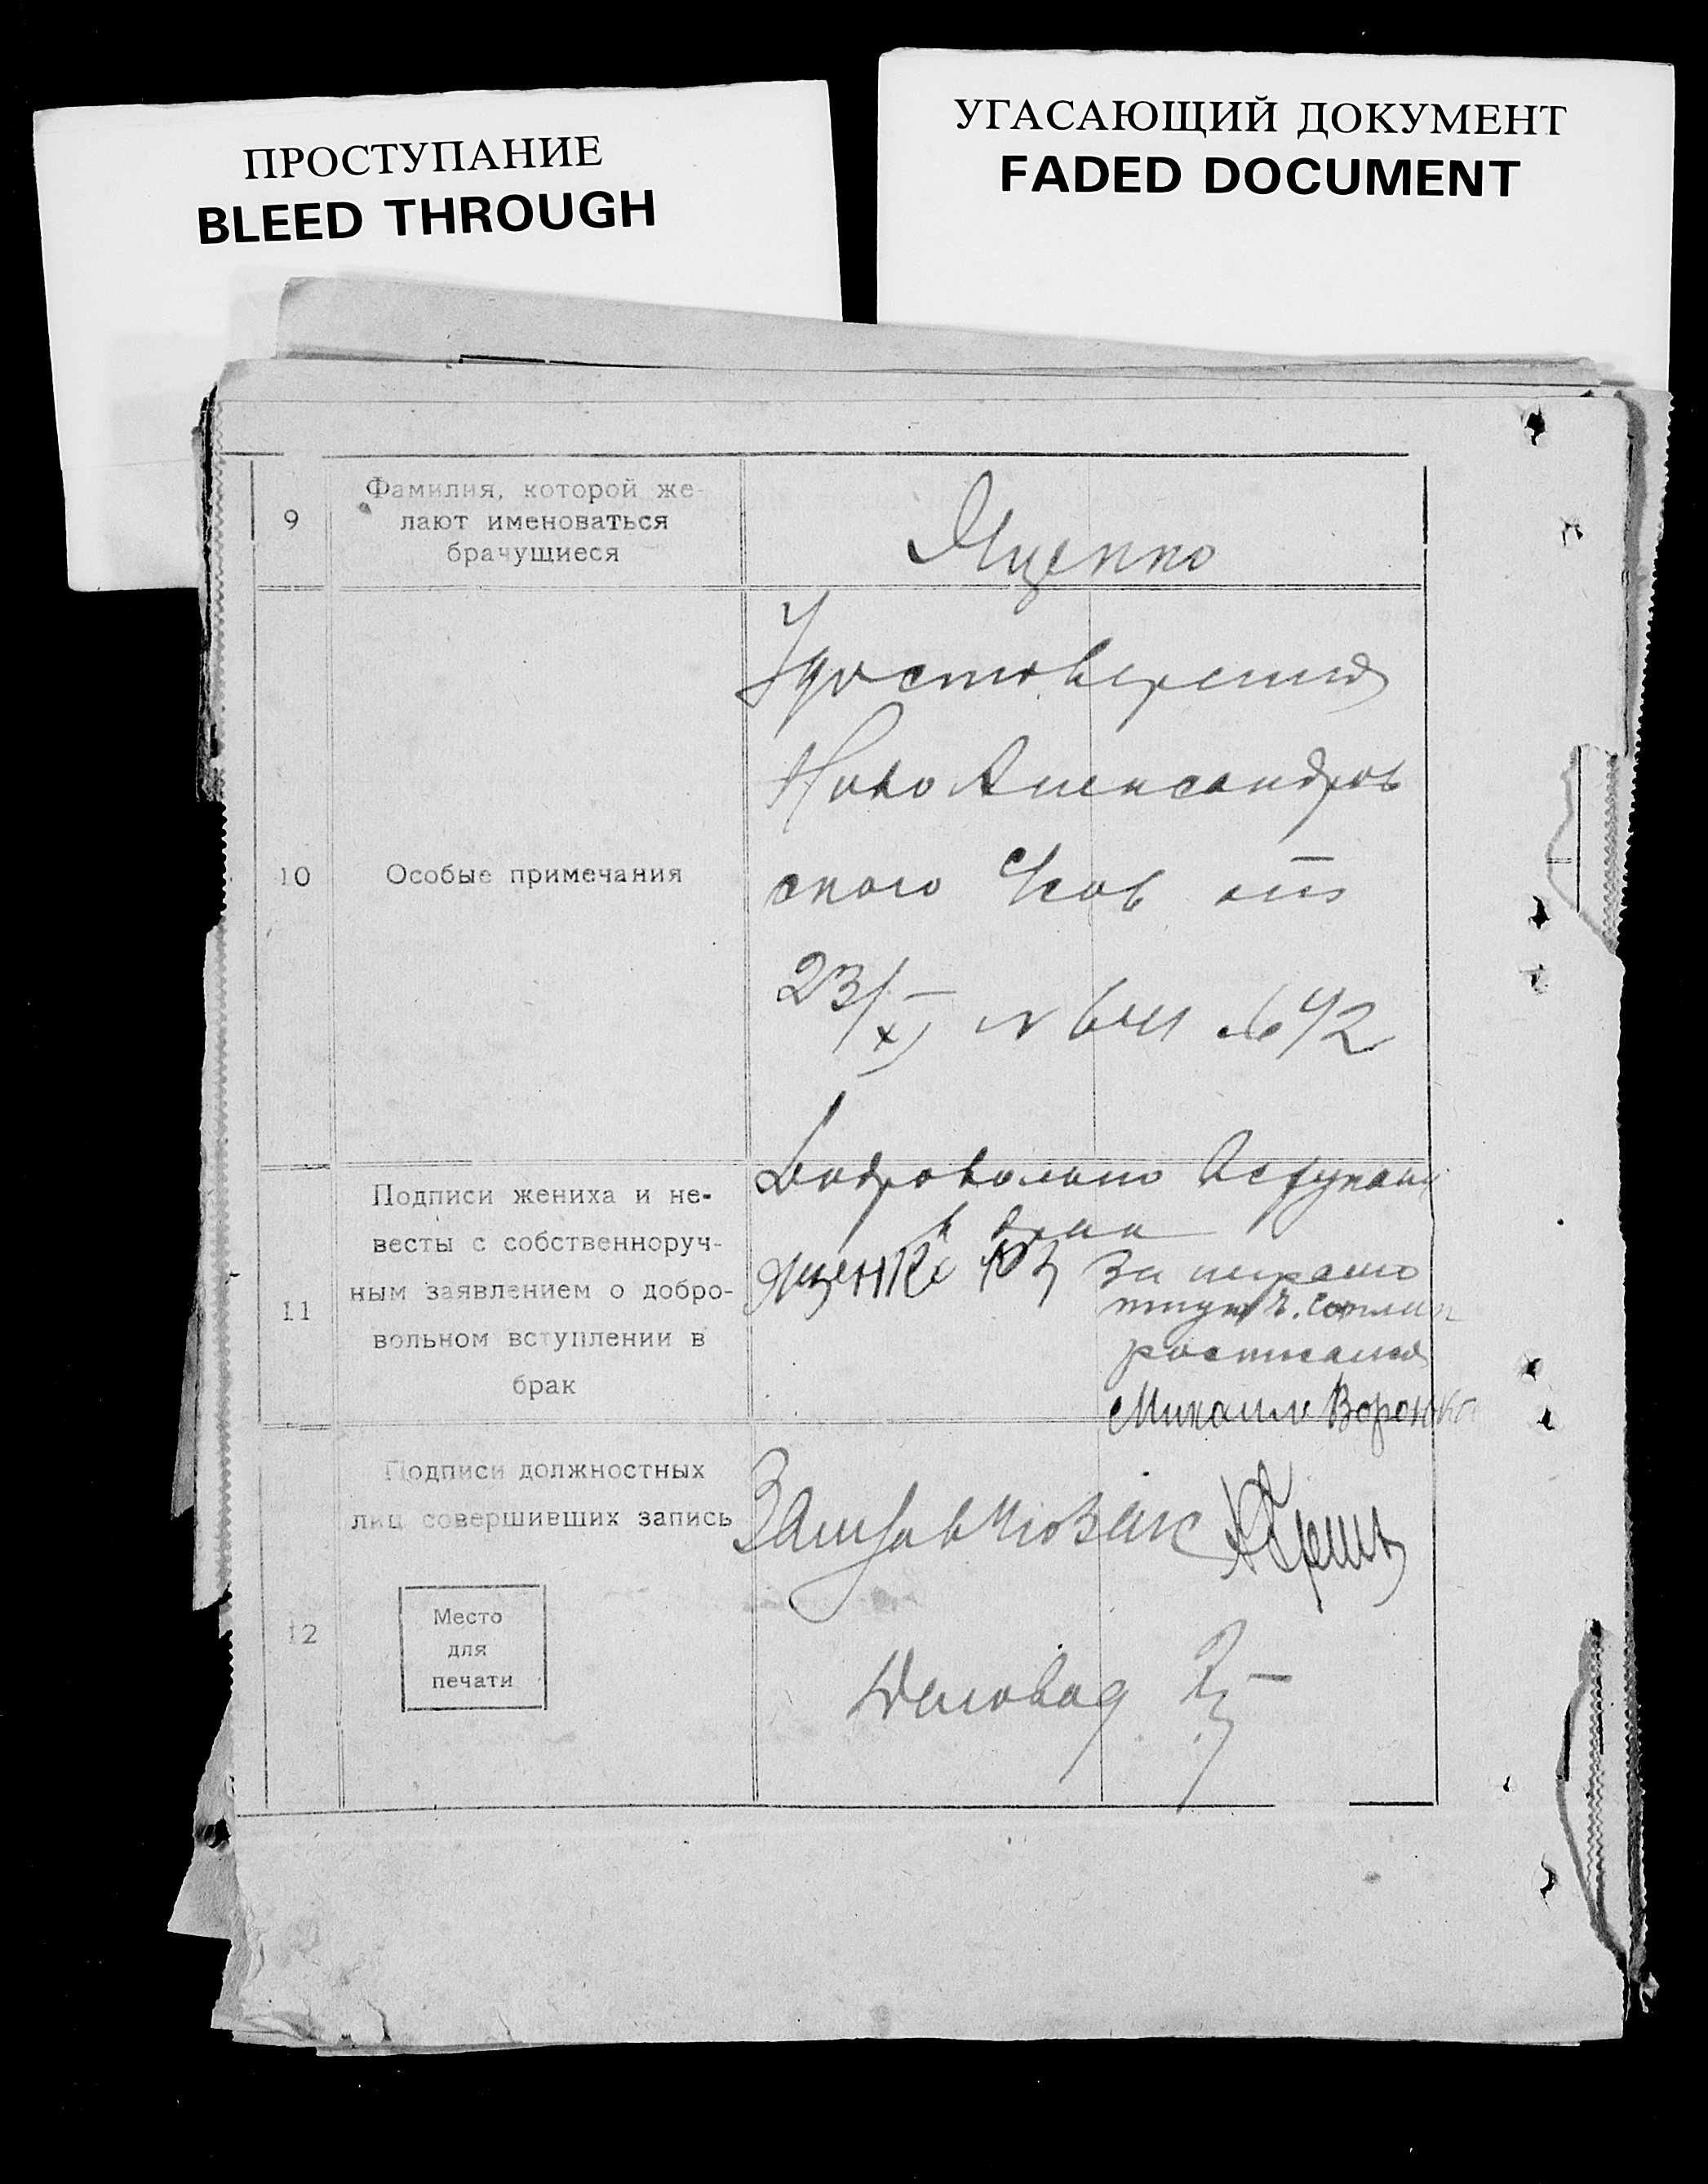 ПРОСТУПАНИЕ
BLEED THROUGH
УГАСАЮЩИЙ ДОКУМЕНТ
FADED DOCUMENT
9
Фамилия, которой же-
лают именоваться
брачущиеся
Ященко
10
Особые примечания
Удостоверения
Ново Александров
ского с/сов от
23/XI
11
Подписи жениха и не-
весты с собственноруч-
ным заявлением о добро-
вольном вступлении в
брак
Добровольно Вступаем
в брак
Ященко
За неграмо
тную
росписался
Михаил Воронко
12
Подписи должностных
лиц совершивших запись
Место
для
печати
Деловод